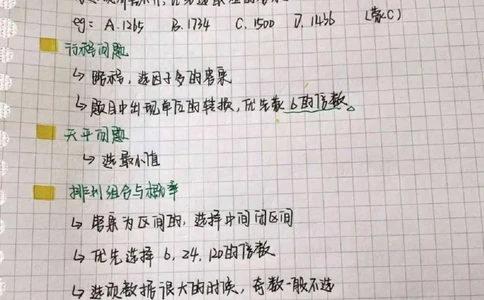 eg: A.1265 B.1734 C.1500 D.1436 (蒙C)
行程问题
↳ 路程,选因子多的答案
↳ 题目中出现单位的转换,优先蒙6的倍数
天平问题
↳ 选最小值
排列组合与概率
↳ 答案为区间的,选择中间闭区间
↳ 优先选择 6, 24, 120的倍数
↳ 选项数据很大的时候,奇数一般不选